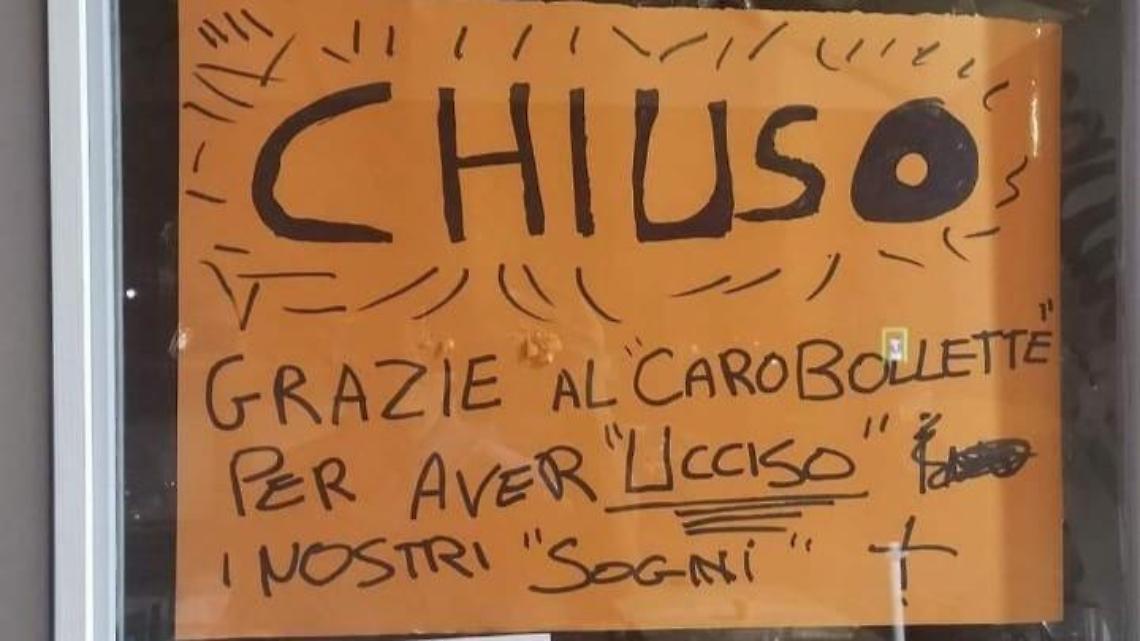 CHIUSO
GRAZIE AL "CAROBOLLETTE"
PER AVER "UCCISO"
I NOSTRI "SOGNi"